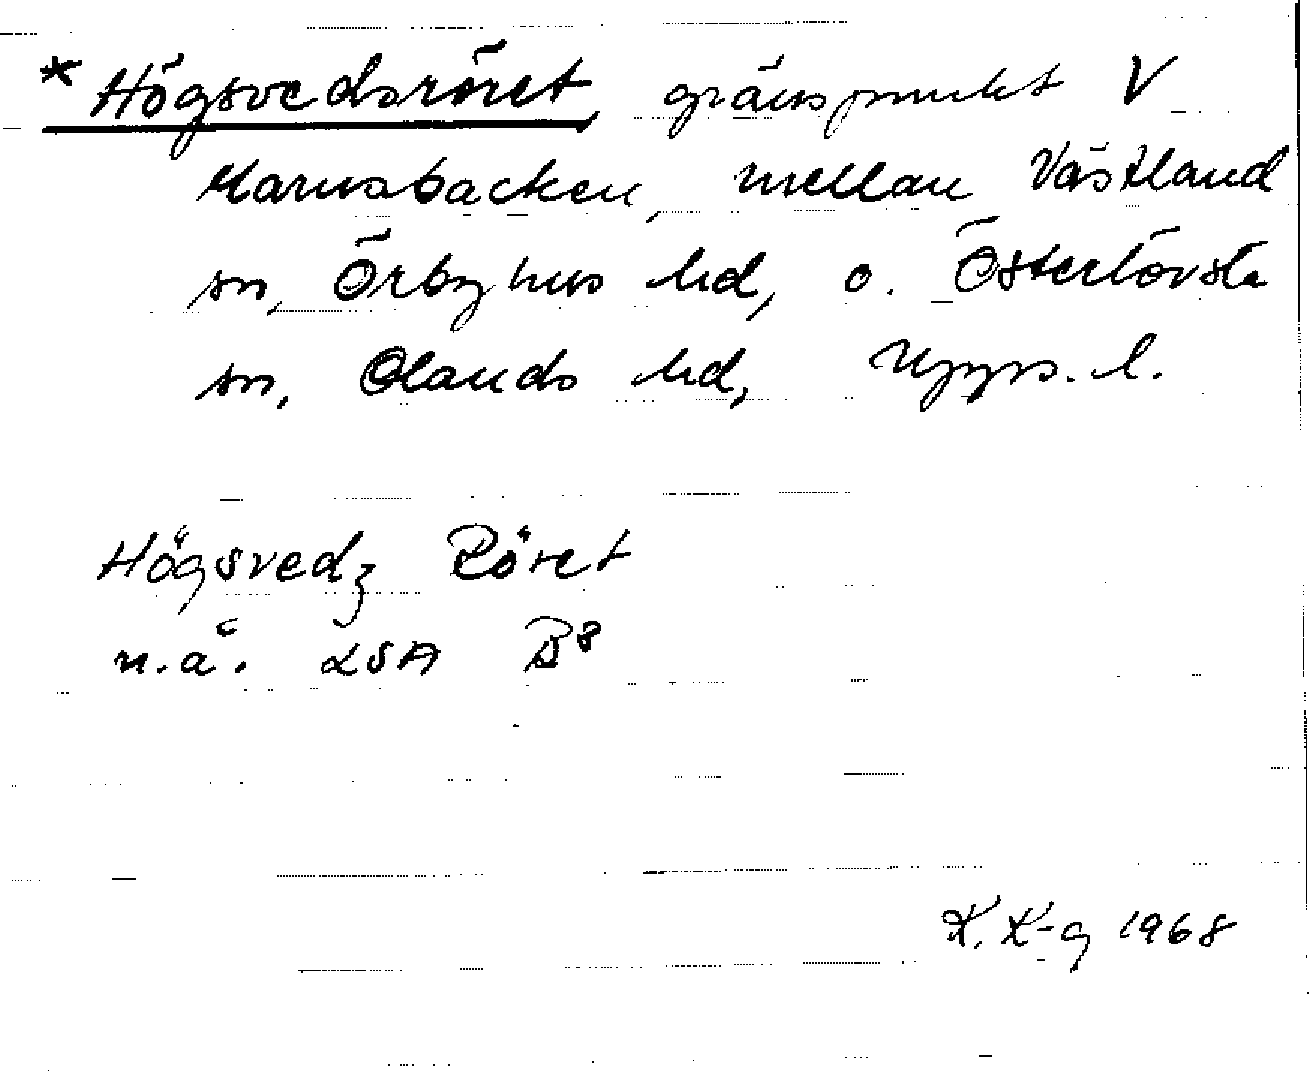 * Högsvedsröret, gränspunkt V
Marnsbacken, mellan Västland
sn, Örbyhus hd, o. Österlövsta
sn, Olands hd, Upps. l.
Högsvedz Röret
n.ä. LSA B8
K. K-g 1968